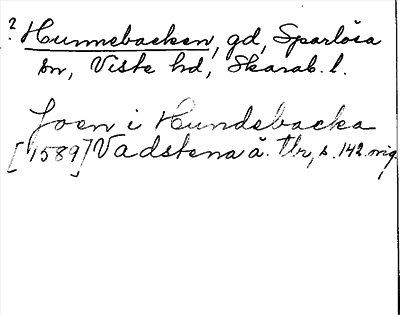 ? Hunnebacken, gd, Sparlösa
sn, Viste hd, Skarab. l.
Joen i Hundebacka
[1589] Vadstena ä. tbr, s. 142. mig.